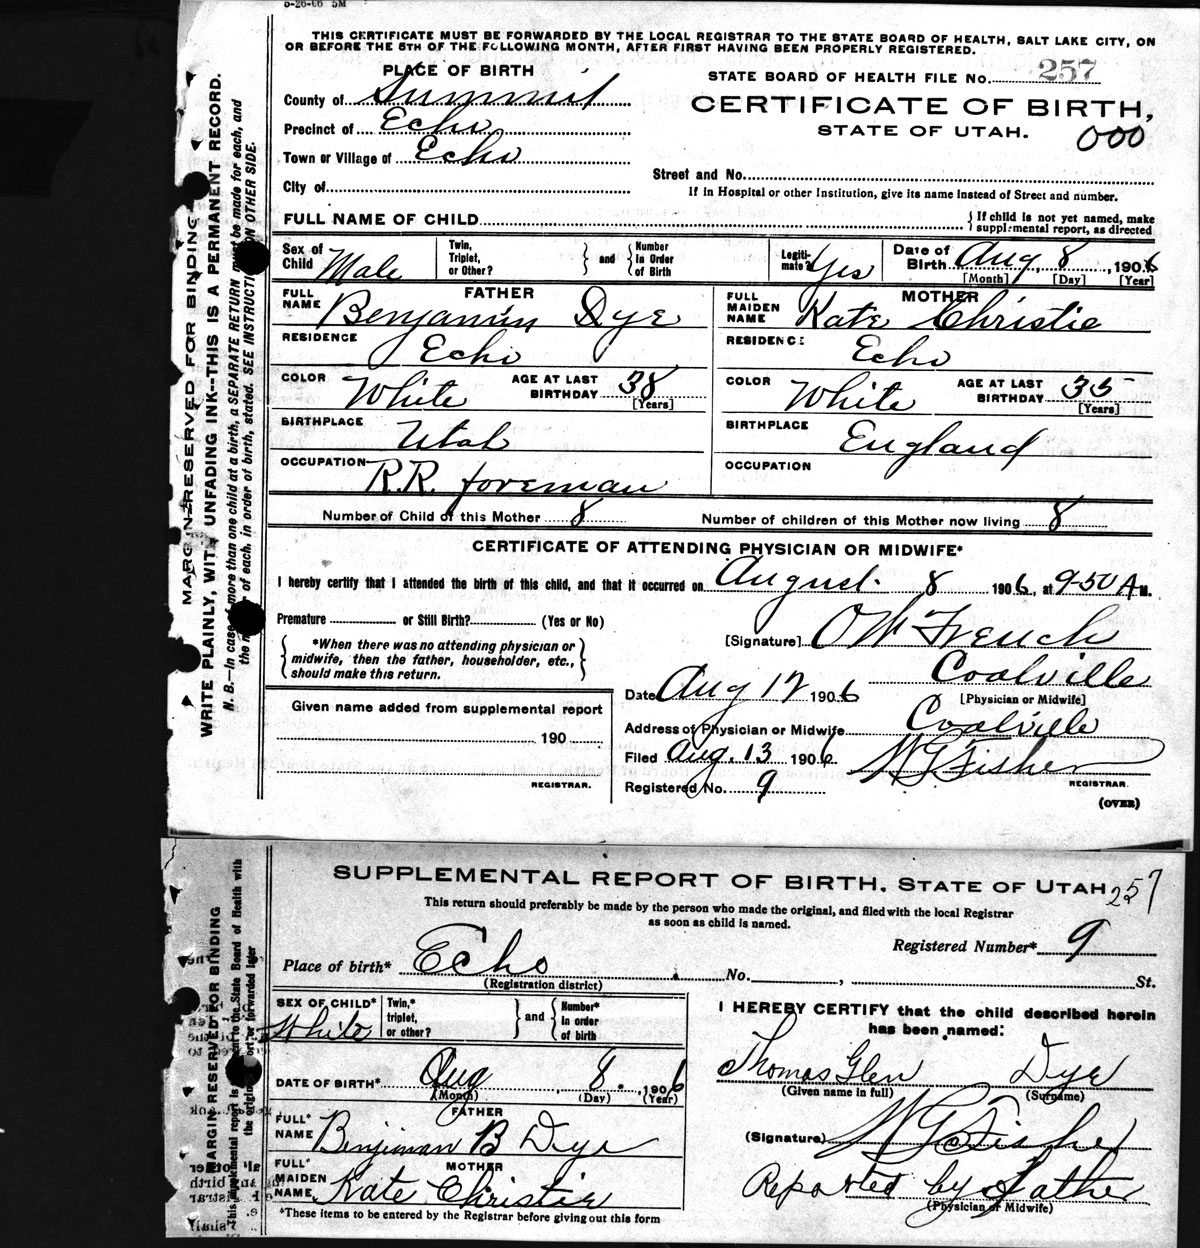 5-26-06 5M
THIS CERTIFICATE MUST BE FORWARDED BY THE LOCAL REGISTRAR TO THE STATE BOARD OF HEALTH, SALT LAKE CITY, ON
OR BEFORE THE 5TH OF THE FOLLOWING MONTH, AFTER FIRST HAVING BEEN PROPERLY REGISTERED.
PLACE OF BIRTH
STATE BOARD OF HEALTH FILE No. 257
County of Summit
CERTIFICATE OF BIRTH,
Precinct of Echo
STATE OF UTAH.
000
Town or Village of Echo
Street and No.
City of
If in Hospital or other Institution, give its name instead of Street and number.
FULL NAME OF CHILD
{If child is not yet named, make supplemental report, as directed
Sex of Child Male
Twin, Triplet, or Other? } and { Number in Order of Birth
Legitimate? Yes
Date of Birth Aug 8, 1906
[Month] [Day] [Year]
FATHER
MOTHER
FULL NAME Benjamin Dye
FULL MAIDEN NAME Kate Christie
RESIDENCE Echo
RESIDENCE Echo
COLOR White AGE AT LAST BIRTHDAY 38 [Years]
COLOR White AGE AT LAST BIRTHDAY 35 [Years]
BIRTHPLACE Utah
BIRTHPLACE England
OCCUPATION R.R. foreman
OCCUPATION
Number of Child of this Mother 8
Number of children of this Mother now living 8
CERTIFICATE OF ATTENDING PHYSICIAN OR MIDWIFE*
I hereby certify that I attended the birth of this child, and that it occurred on August 8 1906, at 9-50 A M.
Premature or Still Birth? (Yes or No)
[Signature] O W French
{*When there was no attending physician or
midwife, then the father, householder, etc.,
should make this return.}
Coalville
Date Aug 12 1906
[Physician or Midwife]
Given name added from supplemental report
Address of Physician or Midwife Coalville
190
Filed Aug. 13 1906 W G Fisher
REGISTRAR.
REGISTRAR.
Registered No. 9
(OVER)
MARGIN RESERVED FOR BINDING
WRITE PLAINLY, WITH UNFADING INK--THIS IS A PERMANENT RECORD.
N. B.—In case of more than one child at a birth, a SEPARATE RETURN must be made for each, and
the number of each, in order of birth, stated. SEE INSTRUCTIONS ON OTHER SIDE.
SUPPLEMENTAL REPORT OF BIRTH, STATE OF UTAH 257
This return should preferably be made by the person who made the original, and filed with the local Registrar
as soon as child is named.
Registered Number* 9
Place of birth* Echo No. , St.
(Registration district)
SEX OF CHILD* White
Twin,* triplet, or other? } and { Number* in order of birth
I HEREBY CERTIFY that the child described herein
has been named:
Thomas Glen Dye
(Given name in full) (Surname)
DATE OF BIRTH* Aug, 8. 1906
(Month) (Day) (Year)
FATHER
FULL* NAME Benjiman B Dye
(Signature) W G Fisher
MOTHER
FULL* MAIDEN NAME Kate Christie
Reported by Father
(Physician or Midwife)
*These items to be entered by the Registrar before giving out this form
MARGIN RESERVED FOR BINDING